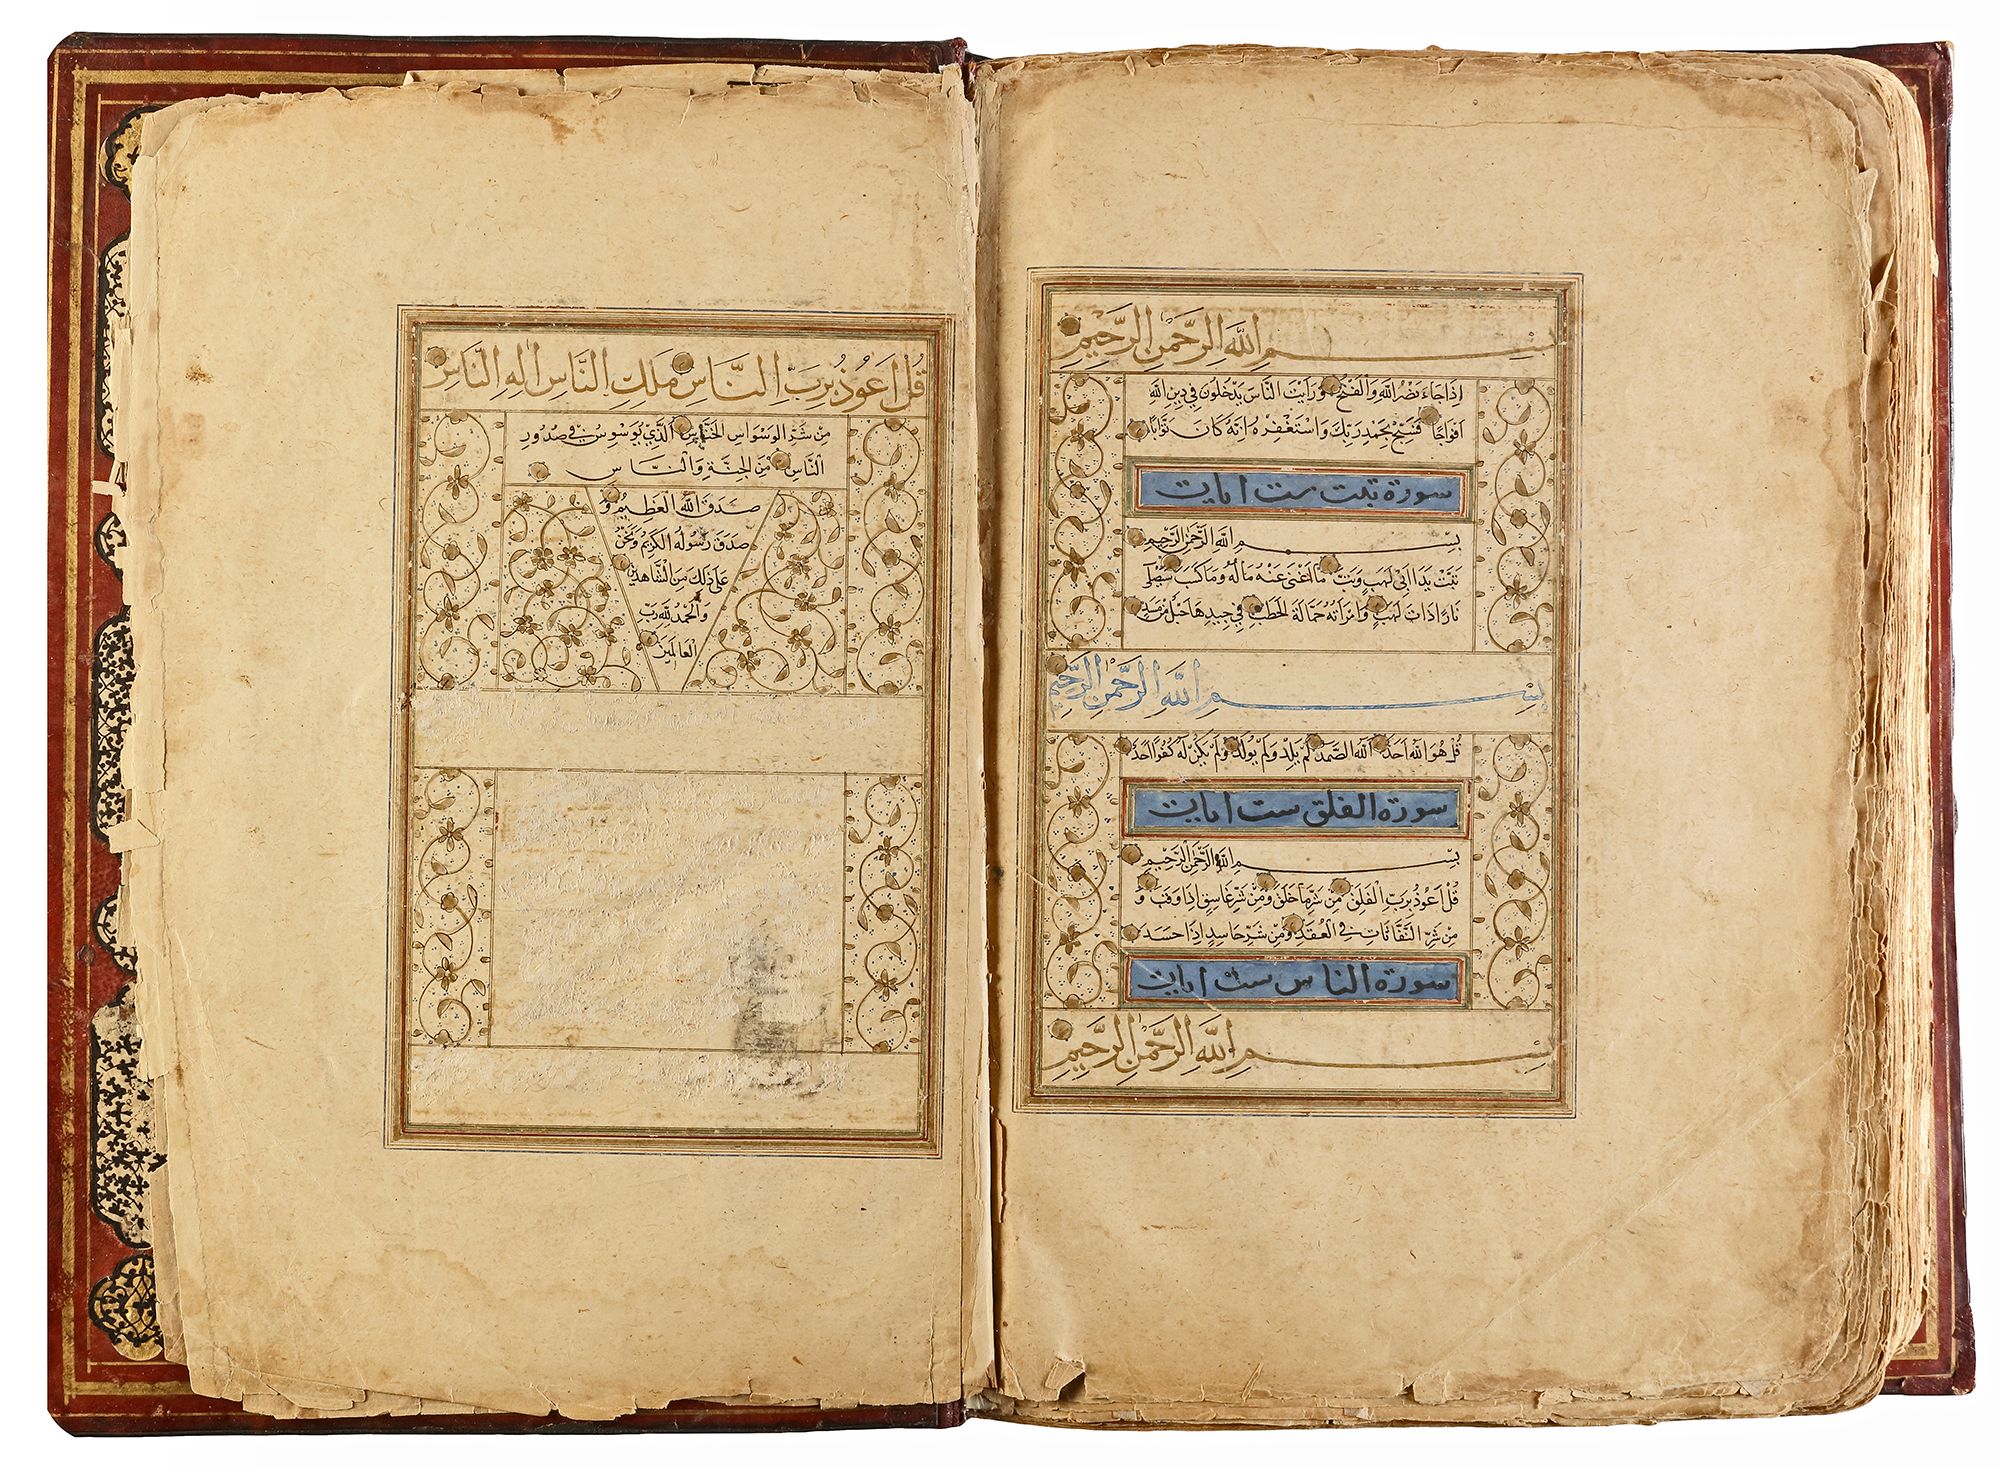 بِسْمِ اللهِ الرَّحْمٰنِ الرَّحِيْمِ
اِذَا جَاءَ نَصْرُ اللهِ وَالْفَتْحُ وَرَاَيْتَ النَّاسَ يَدْخُلُوْنَ فِي دِيْنِ اللهِ
اَفْوَاجًا فَسَبِّحْ بِحَمْدِ رَبِّكَ وَاسْتَغْفِرْهُ اِنَّهُ كَانَ تَوَّابًا
سورة تبت ست ايات
بِسْمِ اللهِ الرَّحْمٰنِ الرَّحِيْمِ
تَبَّتْ يَدَا اَبِي لَهَبٍ وَتَبَّ مَا اَغْنٰى عَنْهُ مَالُهُ وَمَا كَسَبَ سَيَصْلٰى
نَارًا ذَاتَ لَهَبٍ وَامْرَاَتُهُ حَمَّالَةَ الْحَطَبِ فِي جِيْدِهَا حَبْلٌ مِنْ مَسَدٍ
بِسْمِ اللهِ الرَّحْمٰنِ الرَّحِيْمِ
قُلْ هُوَ اللهُ اَحَدٌ اَللهُ الصَّمَدُ لَمْ يَلِدْ وَلَمْ يُوْلَدْ وَلَمْ يَكُنْ لَهُ كُفُوًا اَحَدٌ
سورة الفلق ست ايات
بِسْمِ اللهِ الرَّحْمٰنِ الرَّحِيْمِ
قُلْ اَعُوْذُ بِرَبِّ الْفَلَقِ مِنْ شَرِّ مَا خَلَقَ وَمِنْ شَرِّ غَاسِقٍ اِذَا وَقَبَ وَ
مِنْ شَرِّ النَّفَّاثَاتِ فِي الْعُقَدِ وَمِنْ شَرِّ حَاسِدٍ اِذَا حَسَدَ
سورة الناس ست ايات
بِسْمِ اللهِ الرَّحْمٰنِ الرَّحِيْمِ
قُلْ اَعُوْذُ بِرَبِّ النَّاسِ مَلِكِ النَّاسِ اِلٰهِ النَّاسِ
مِنْ شَرِّ الْوَسْوَاسِ الْخَنَّاسِ الَّذِي يُوَسْوِسُ فِي صُدُوْرِ
النَّاسِ مِنَ الْجِنَّةِ وَالنَّاسِ
صَدَقَ اللهُ الْعَظِيْمُ وَ
صَدَقَ رَسُوْلُهُ الْكَرِيْمُ وَنَحْنُ
عَلٰى ذٰلِكَ مِنَ الشَّاهِدِيْنَ
وَالْحَمْدُ لِلّٰهِ رَبِّ
الْعَالَمِيْنَ